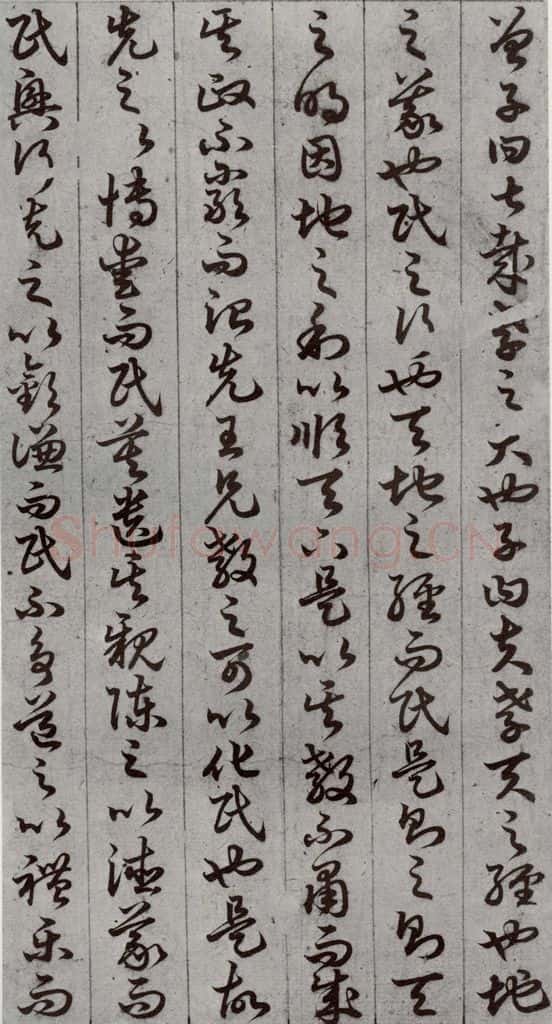 曾子曰甚哉孝之大也子曰夫孝天之經也地
之義也民之行也天地之經而民是則之則天
之明因地之利以順天下是以其教不肅而成
其政不嚴而治先王見教之可以化民也是故
先之以博愛而民莫遺其親陳之以德義而
民興行先之以敬讓而民不爭道之以禮樂而
Shufawang.CN